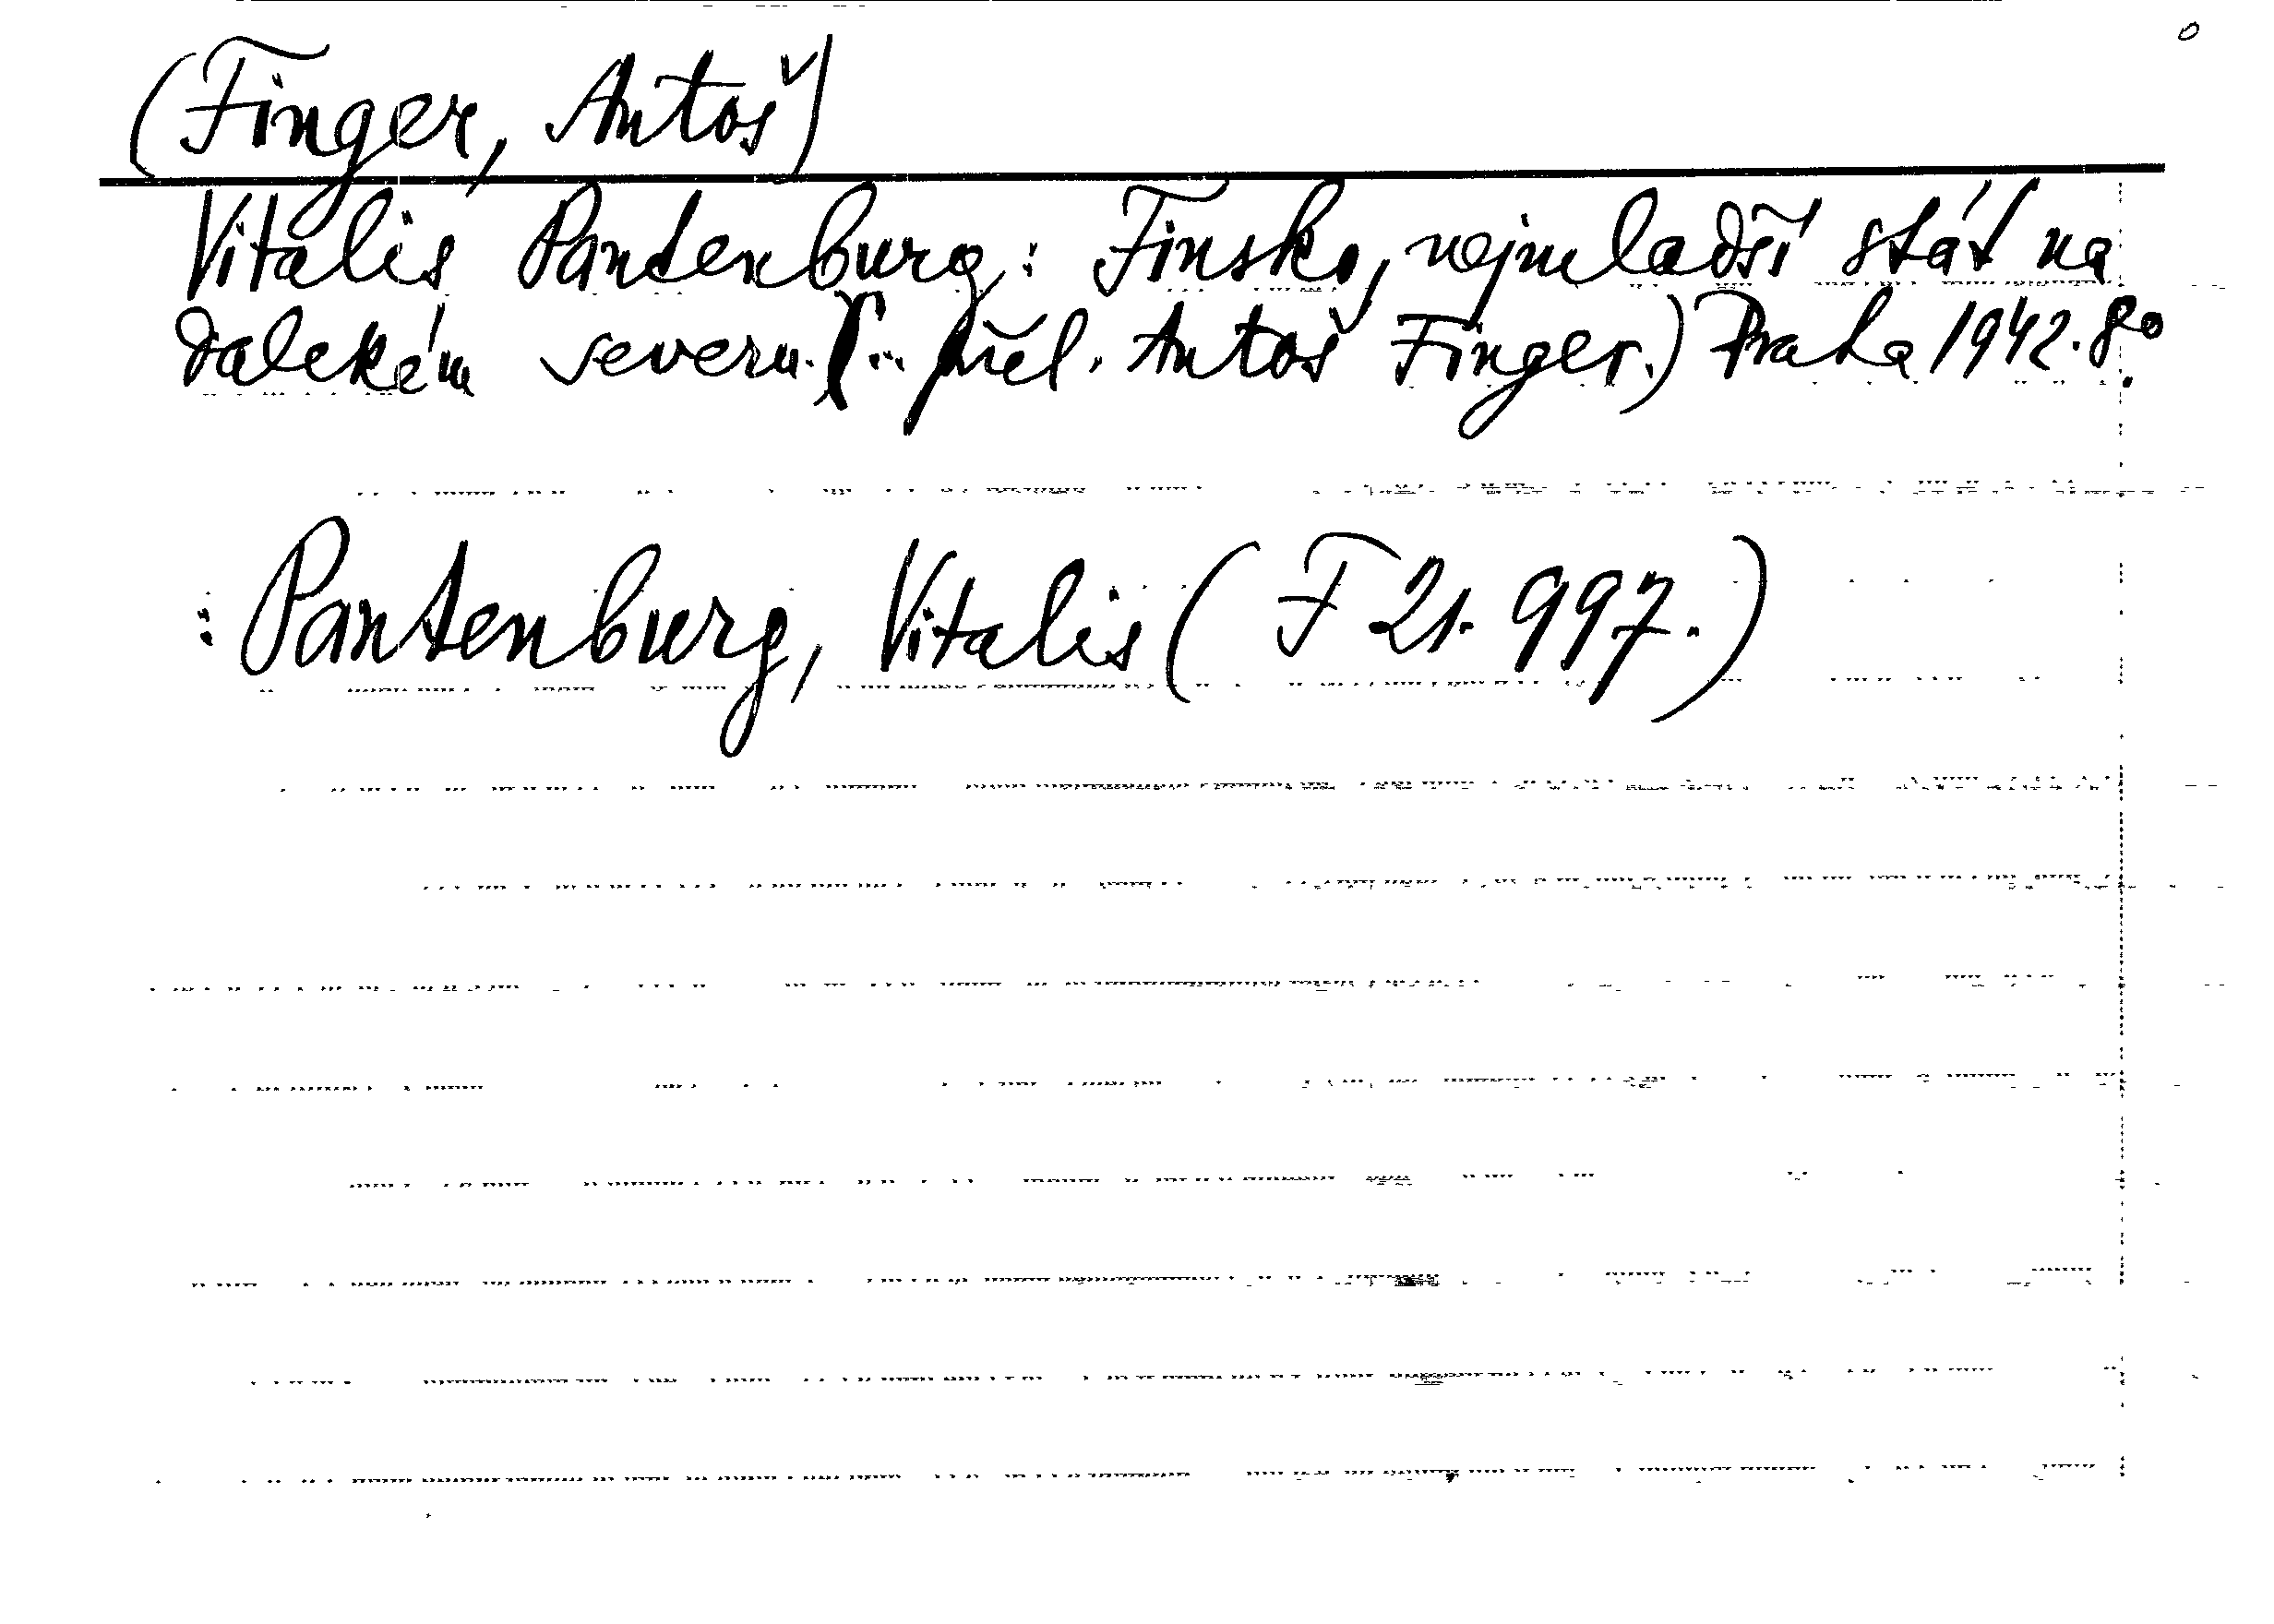 (Finger, Antoš)
Vitalis Pantenburg: Finsko, nejmladší stát na
dalekém severu. (... přel. Antoš Finger.) Praha 1942. 8°.
: Pantenburg, Vitalis ( F 21.997.)